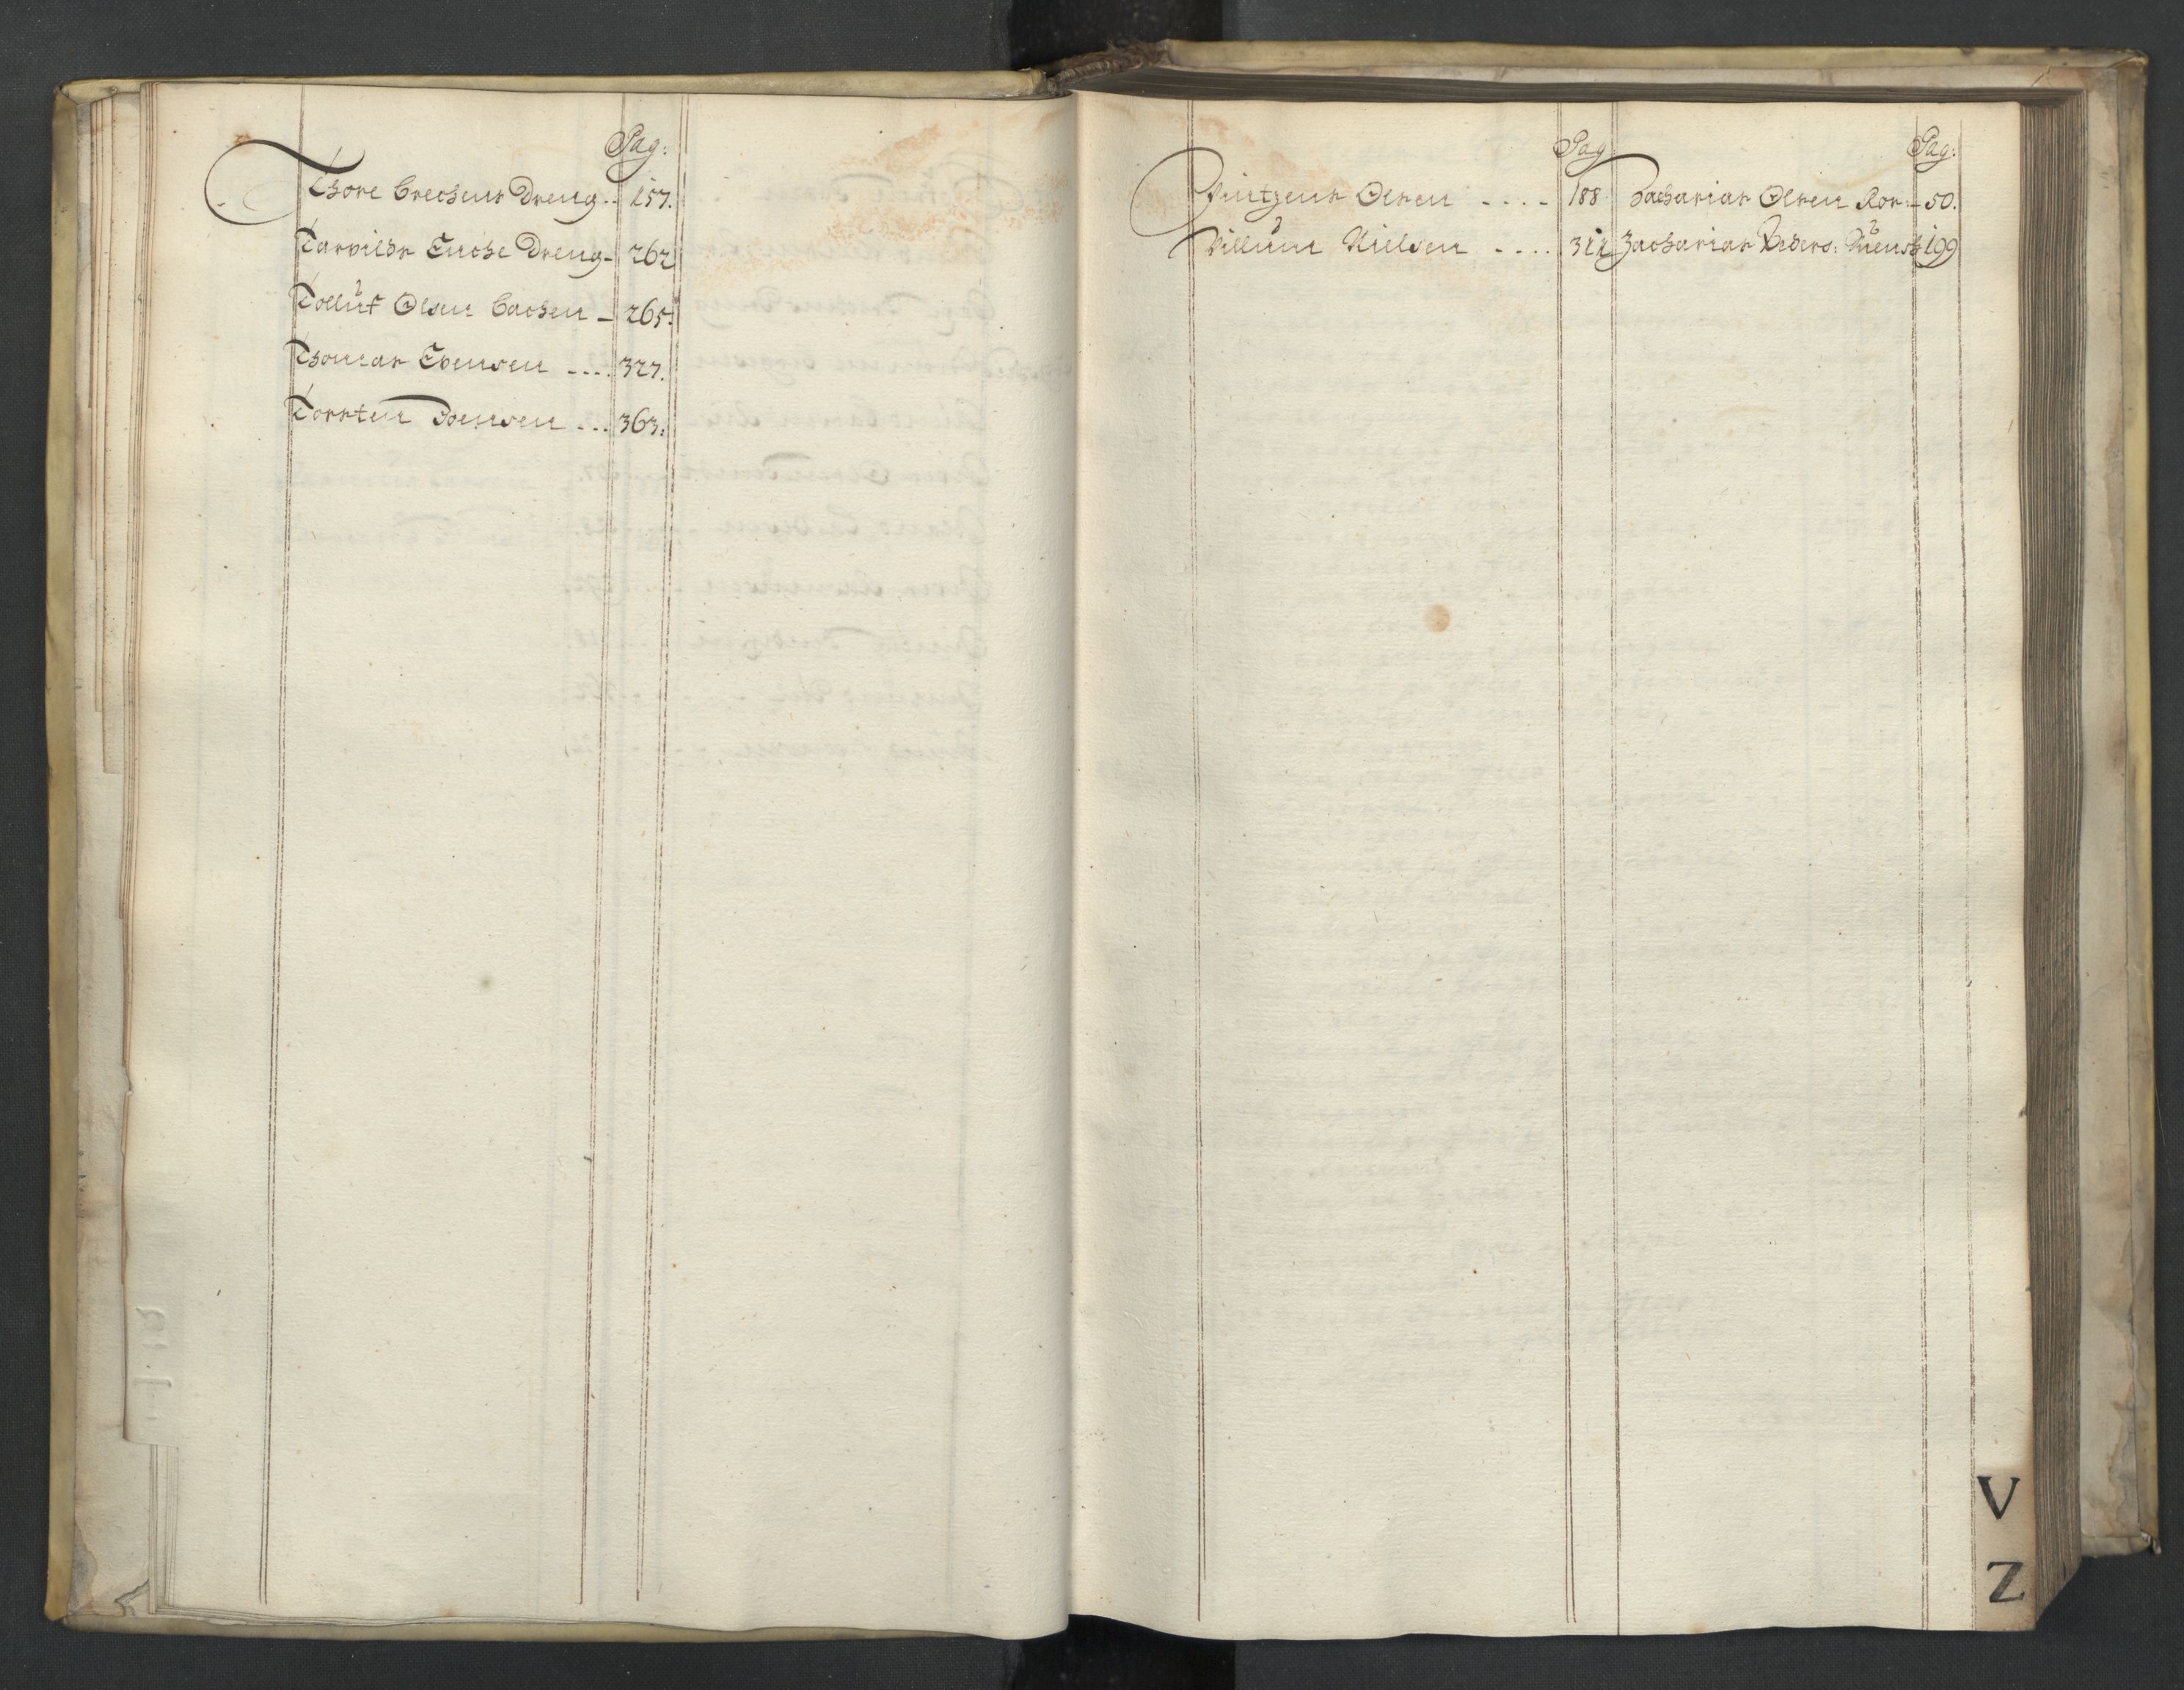 Pag:
Thore Brechens Dreng .. 157.
Tarvildr Enche Dreng - 262
Tolluf Olsen Bachen - 265.
Thomas Evensen .... 327.
Torsten Joensen ... 363.
Pag
Vintzens Olsen .... 188
Villum Nielsen ....
Pag:
Zacharias Olsen Ror: - 50.
Zacharias Peders: 199
V
Z